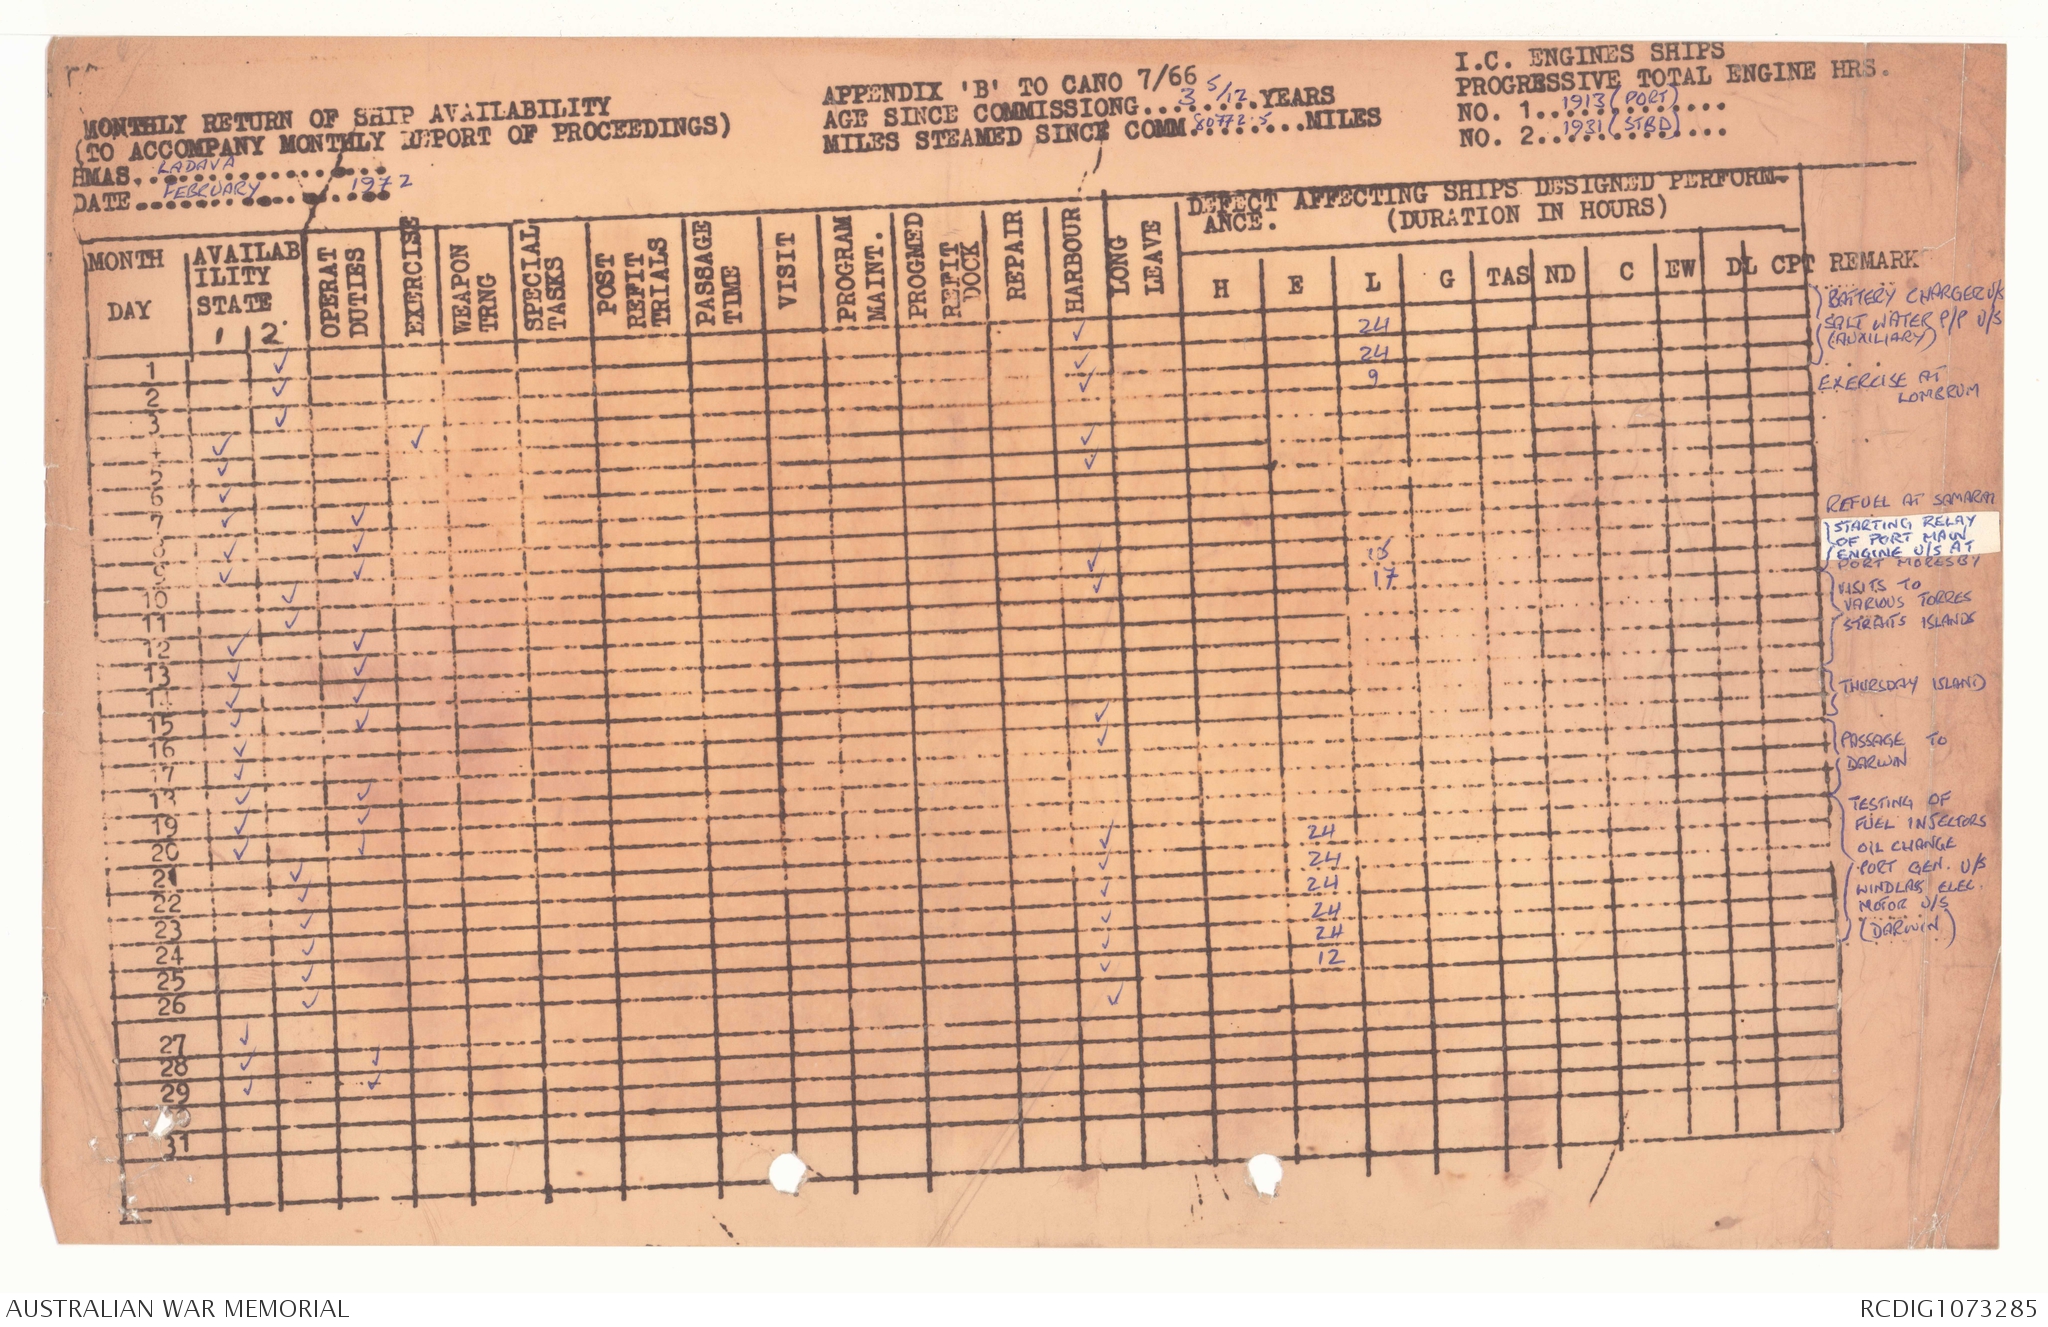 MONTHLY RETURN OF SHIP AVAILABILITY
(TO ACCOMPANY MONTHLY REPORT OF PROCEEDINGS)
HMAS. LADAVA
DATE. FEBRUARY 1972
APPENDIX 'B' TO CANO 7/66
AGE SINCE COMMISSIONG... 3 5/12 .YEARS
MILES STEAMED SINCE COMM 80772.5 ...MILES
I.C. ENGINES SHIPS
PROGRESSIVE TOTAL ENGINE HRS.
NO. 1.. 1913 (PORT)
NO. 2.. 1931 (STBD)
MONTH
DAY
AVAILAB
ILITY
STATE
1 | 2
OPERAT
DUTIES
EXERCISE
WEAPON
TRNG
SPECIAL
TASKS
POST
REFIT
TRIALS
PASSAGE
TIME
VISIT
PROGRAM
MAINT.
PROGMED
REFIT
DOCK
REPAIR
HARBOUR
LONG
LEAVE
DEFECT AFFECTING SHIPS DESIGNED PERFORM-
ANCE. (DURATION IN HOURS)
H E L G TAS ND C EW DL CPT REMARK
1 ✓ ✓ 24
2 ✓ ✓ 24
3 ✓ ✓ 9
4 ✓ ✓
5 ✓ ✓
6 ✓ ✓
7 ✓ ✓
8 ✓ ✓
9 ✓ ✓
10 ✓ ✓ 15
11 ✓ ✓ 17
12 ✓ ✓
13 ✓ ✓
14 ✓ ✓
15 ✓ ✓
16 ✓ ✓
17 ✓ ✓
18 ✓ ✓
19 ✓ ✓
20 ✓ ✓
21 ✓ ✓ 24
22 ✓ ✓ 24
23 ✓ ✓ 24
24 ✓ ✓ 24
25 ✓ ✓ 24
26 ✓ ✓ 12
27 ✓ ✓
28 ✓ ✓
29 ✓ ✓
30
31
BATTERY CHARGER U/S
SALT WATER P/P U/S
(AUXILIARY)
EXERCISE AT
LOMBRUM
REFUEL AT SAMARAI
STARTING RELAY
OF PORT MAIN
ENGINE U/S AT
PORT MORESBY
VISITS TO
VARIOUS TORRES
STRAITS ISLANDS
THURSDAY ISLAND
PASSAGE TO
DARWIN
TESTING OF
FUEL INJECTORS
OIL CHANGE
PORT GEN. U/S
WINDLASS ELEC.
MOTOR U/S
(DARWIN)
AUSTRALIAN WAR MEMORIAL
RCDIG1073285